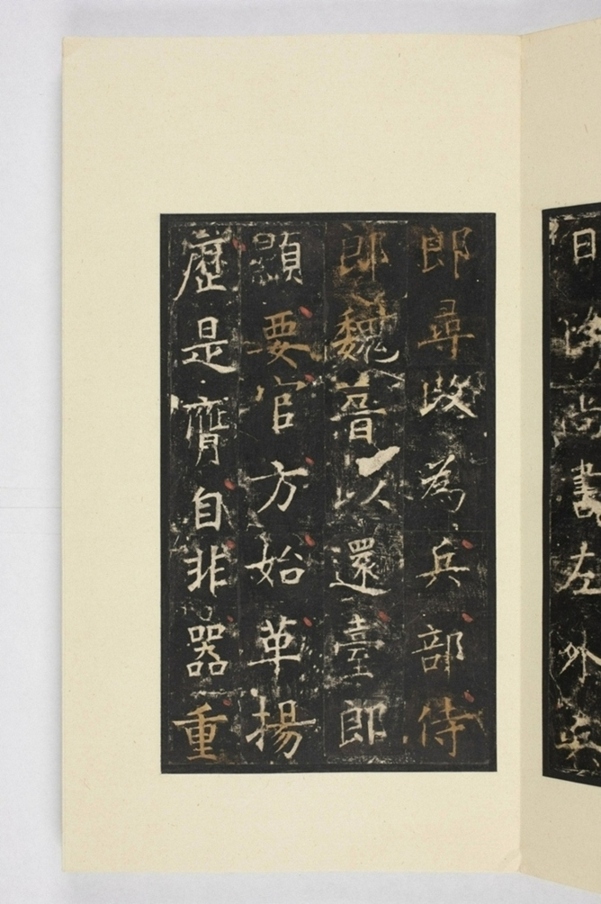 日改尚書左外兵
郎尋改為兵部侍
郎魏晉以還臺郎
顯要官方始革揚
歷是膺自非器重